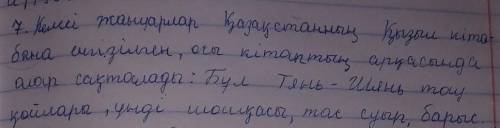 7. Кейсі жануарлар Қазақстанның Қызыл кіта-
бына енгізілген, осы кітаптың арқасында
олар сақталады: Бұл Тянь-Шянь тау
қойлары, үнді шошқасы, тас суыр, барыс.